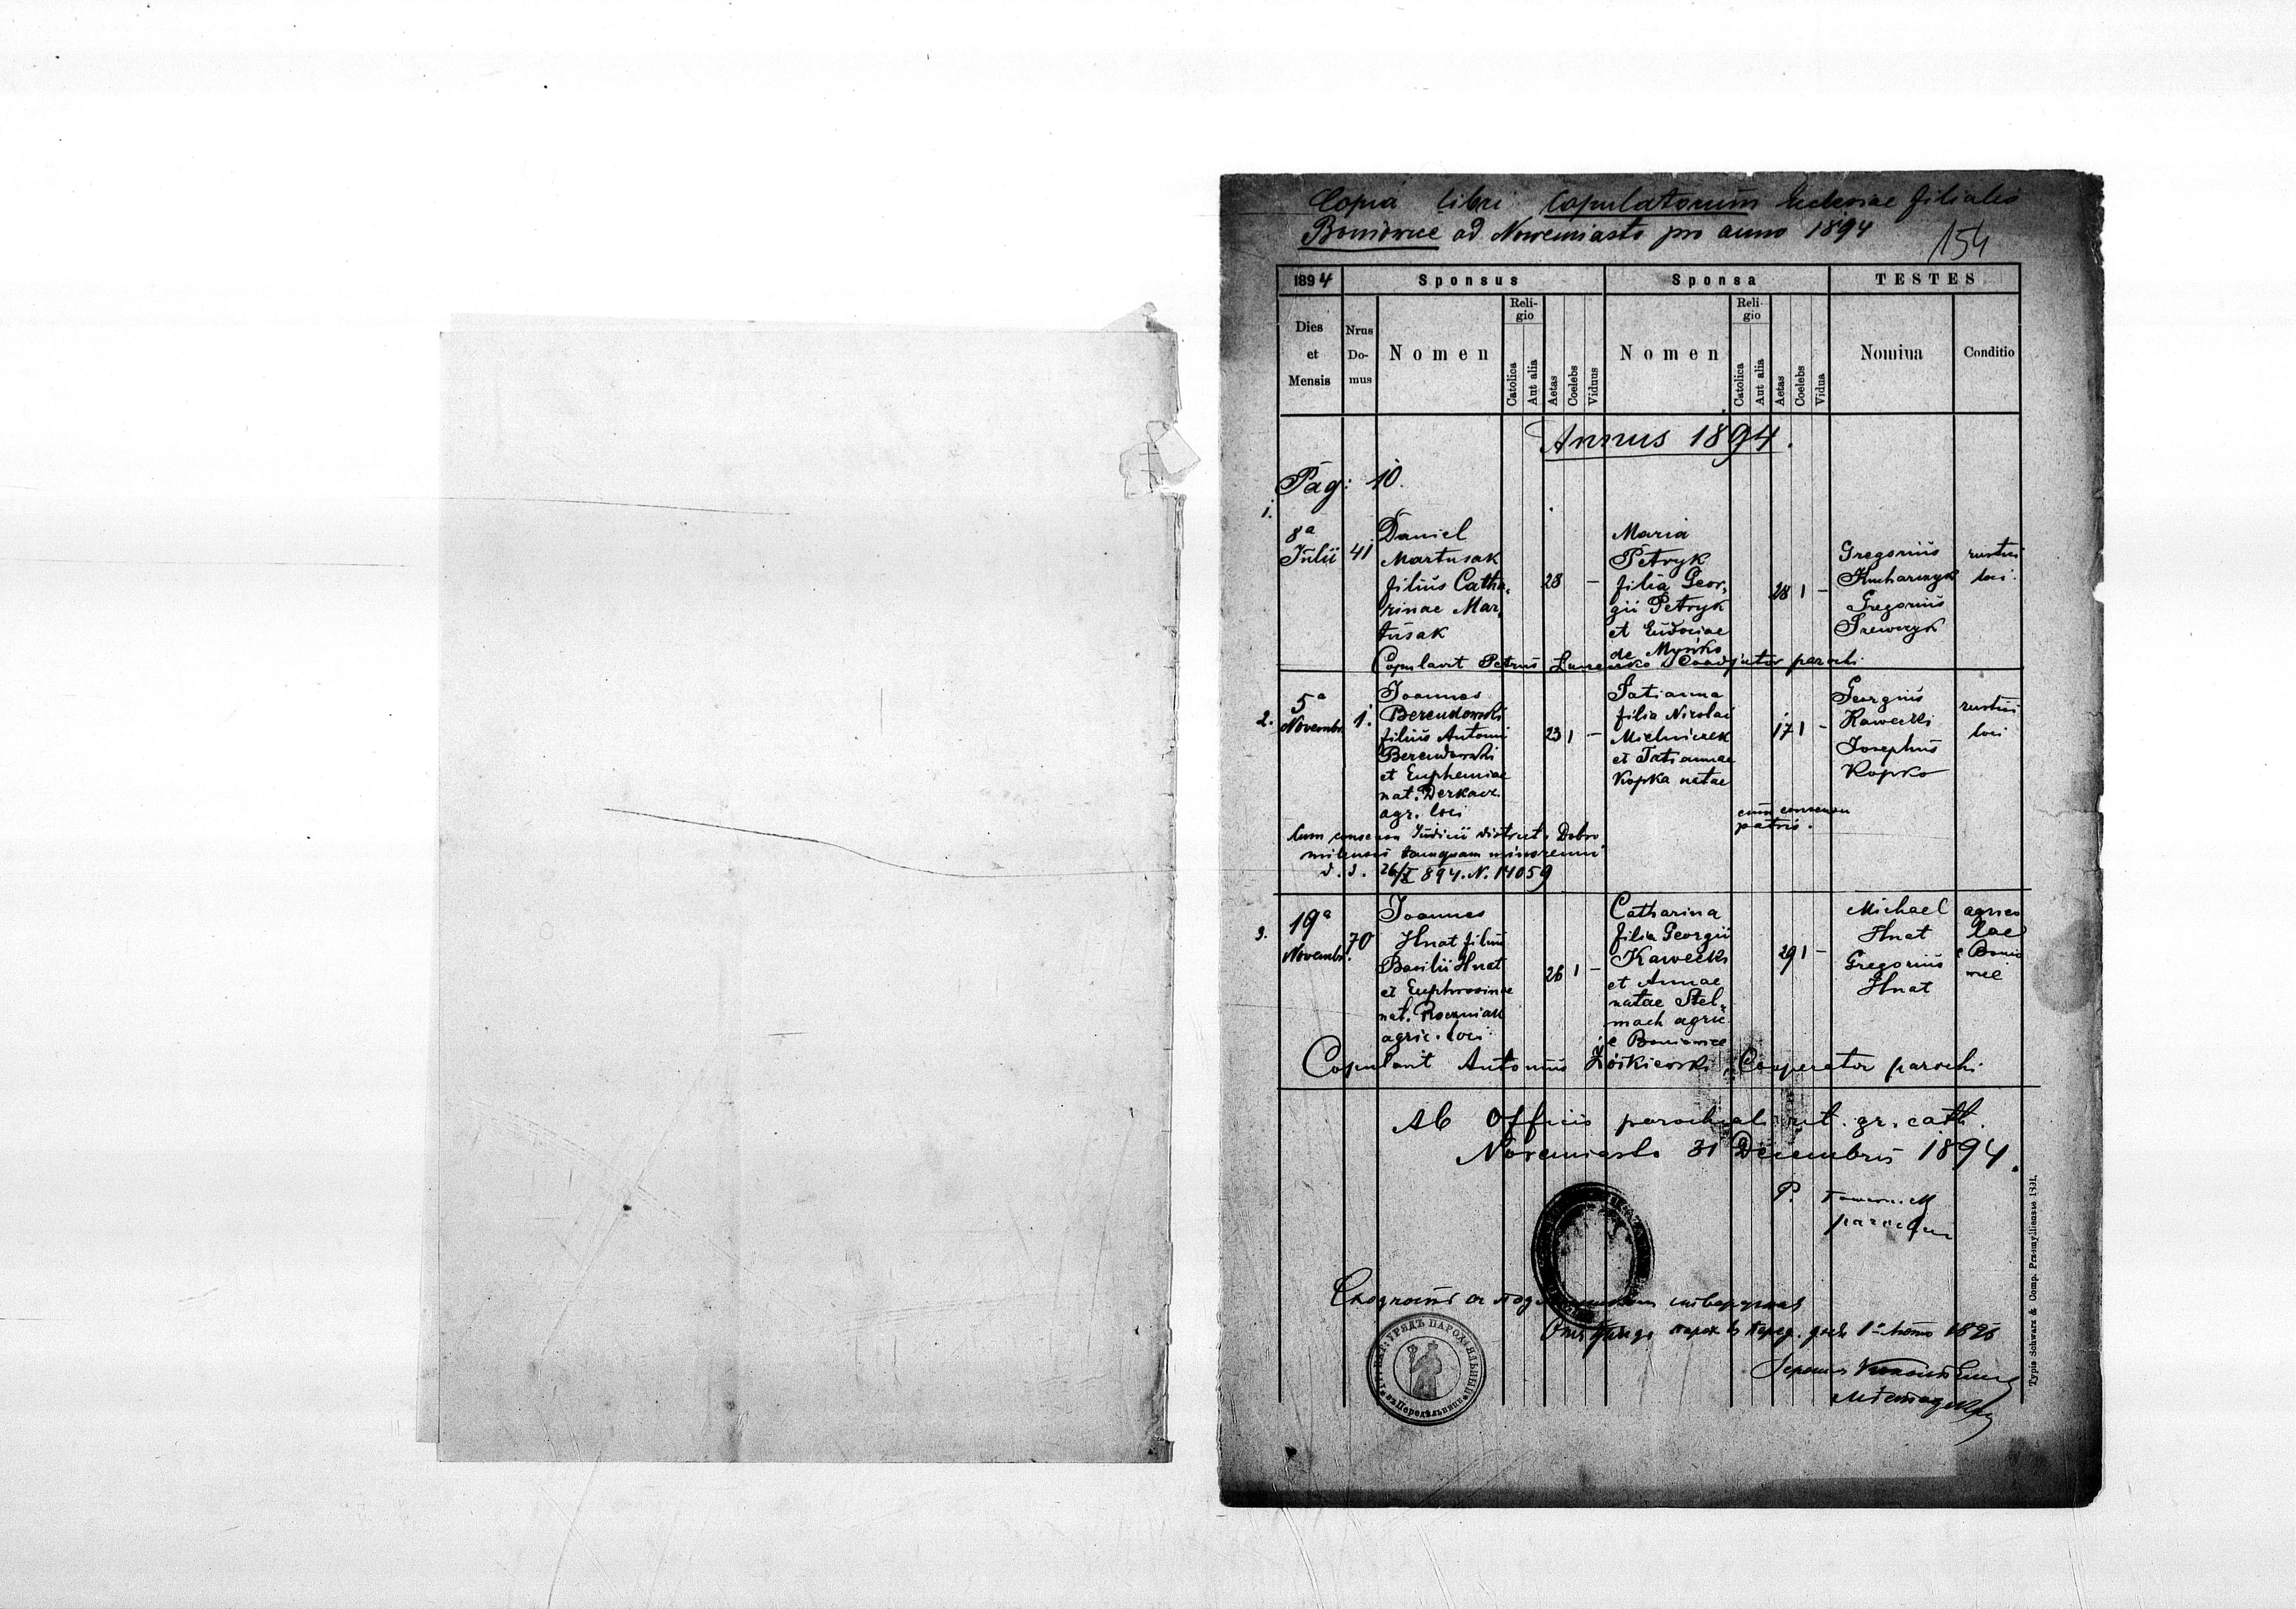 Copia Libri Copulatorum Ecclesiae filialis
Boniowice ad Nowemiasto pro anno 1894
154
1894 Sponsus Sponsa TESTES
Dies et Mensis Nrus Domus Nomen Religio Catolica Aut alia Aetas Coelebs Viduus Nomen Religio Catolica Aut alia Aetas Coelebs Vidua Nomina Conditio
Annus 1894.
Pag: 10.
1.
8a
Julii
41
Daniel
Martusak
filius Catha-
rinae Mar-
tusak
28 –
Maria
Petryk
filia Geor-
gii Petryk
et Eudociae
de Mysko
28 1 –
Gregorius
Kucharczyk
Gregorius
rustici
loci.
Copulavit Petrus Coadjutor parochi
2.
5a
Novembr.
1.
Joannes
Berendowski
filius Antonii
Berendowski
et Euphemiae
nat. Derkacz
agr. loci
23 1 –
Tatianna
filia Nicolai
Mielniczek
et Tatiannae
Kopka natae
17 1 –
cum consensu
patris.
Georgius
Kawecki
Josephus
Kopko
rustici
loci
Cum consensu Judicii district. Dobro
milensis tamquam minorenni
d. d. 26/X 894. N. 14059
3.
19a
Novembr.
70
Joannes
Hnat filius
Basilii Hnat
et Euphrosinae
nat. Roczniak
agric. loci
26 1 –
Catharina
filia Georgii
Kawecki
et Annae
natae Stel-
mach agric.
e Boniowice
29 1 –
Michael
Hnat
Gregorius
Hnat
agrico
lae
e Bonio
wice
Copulavit Antonius Cooperator parochi
Ab Officio parochiali rit. gr. cath.
Novemiasto 31 Decembris 1894.
P.
parochus
УРЯДЪ ПАРОХІЯЛЬНЫЙ
Typis Schwarz & Comp. Praemyliensae 1891.